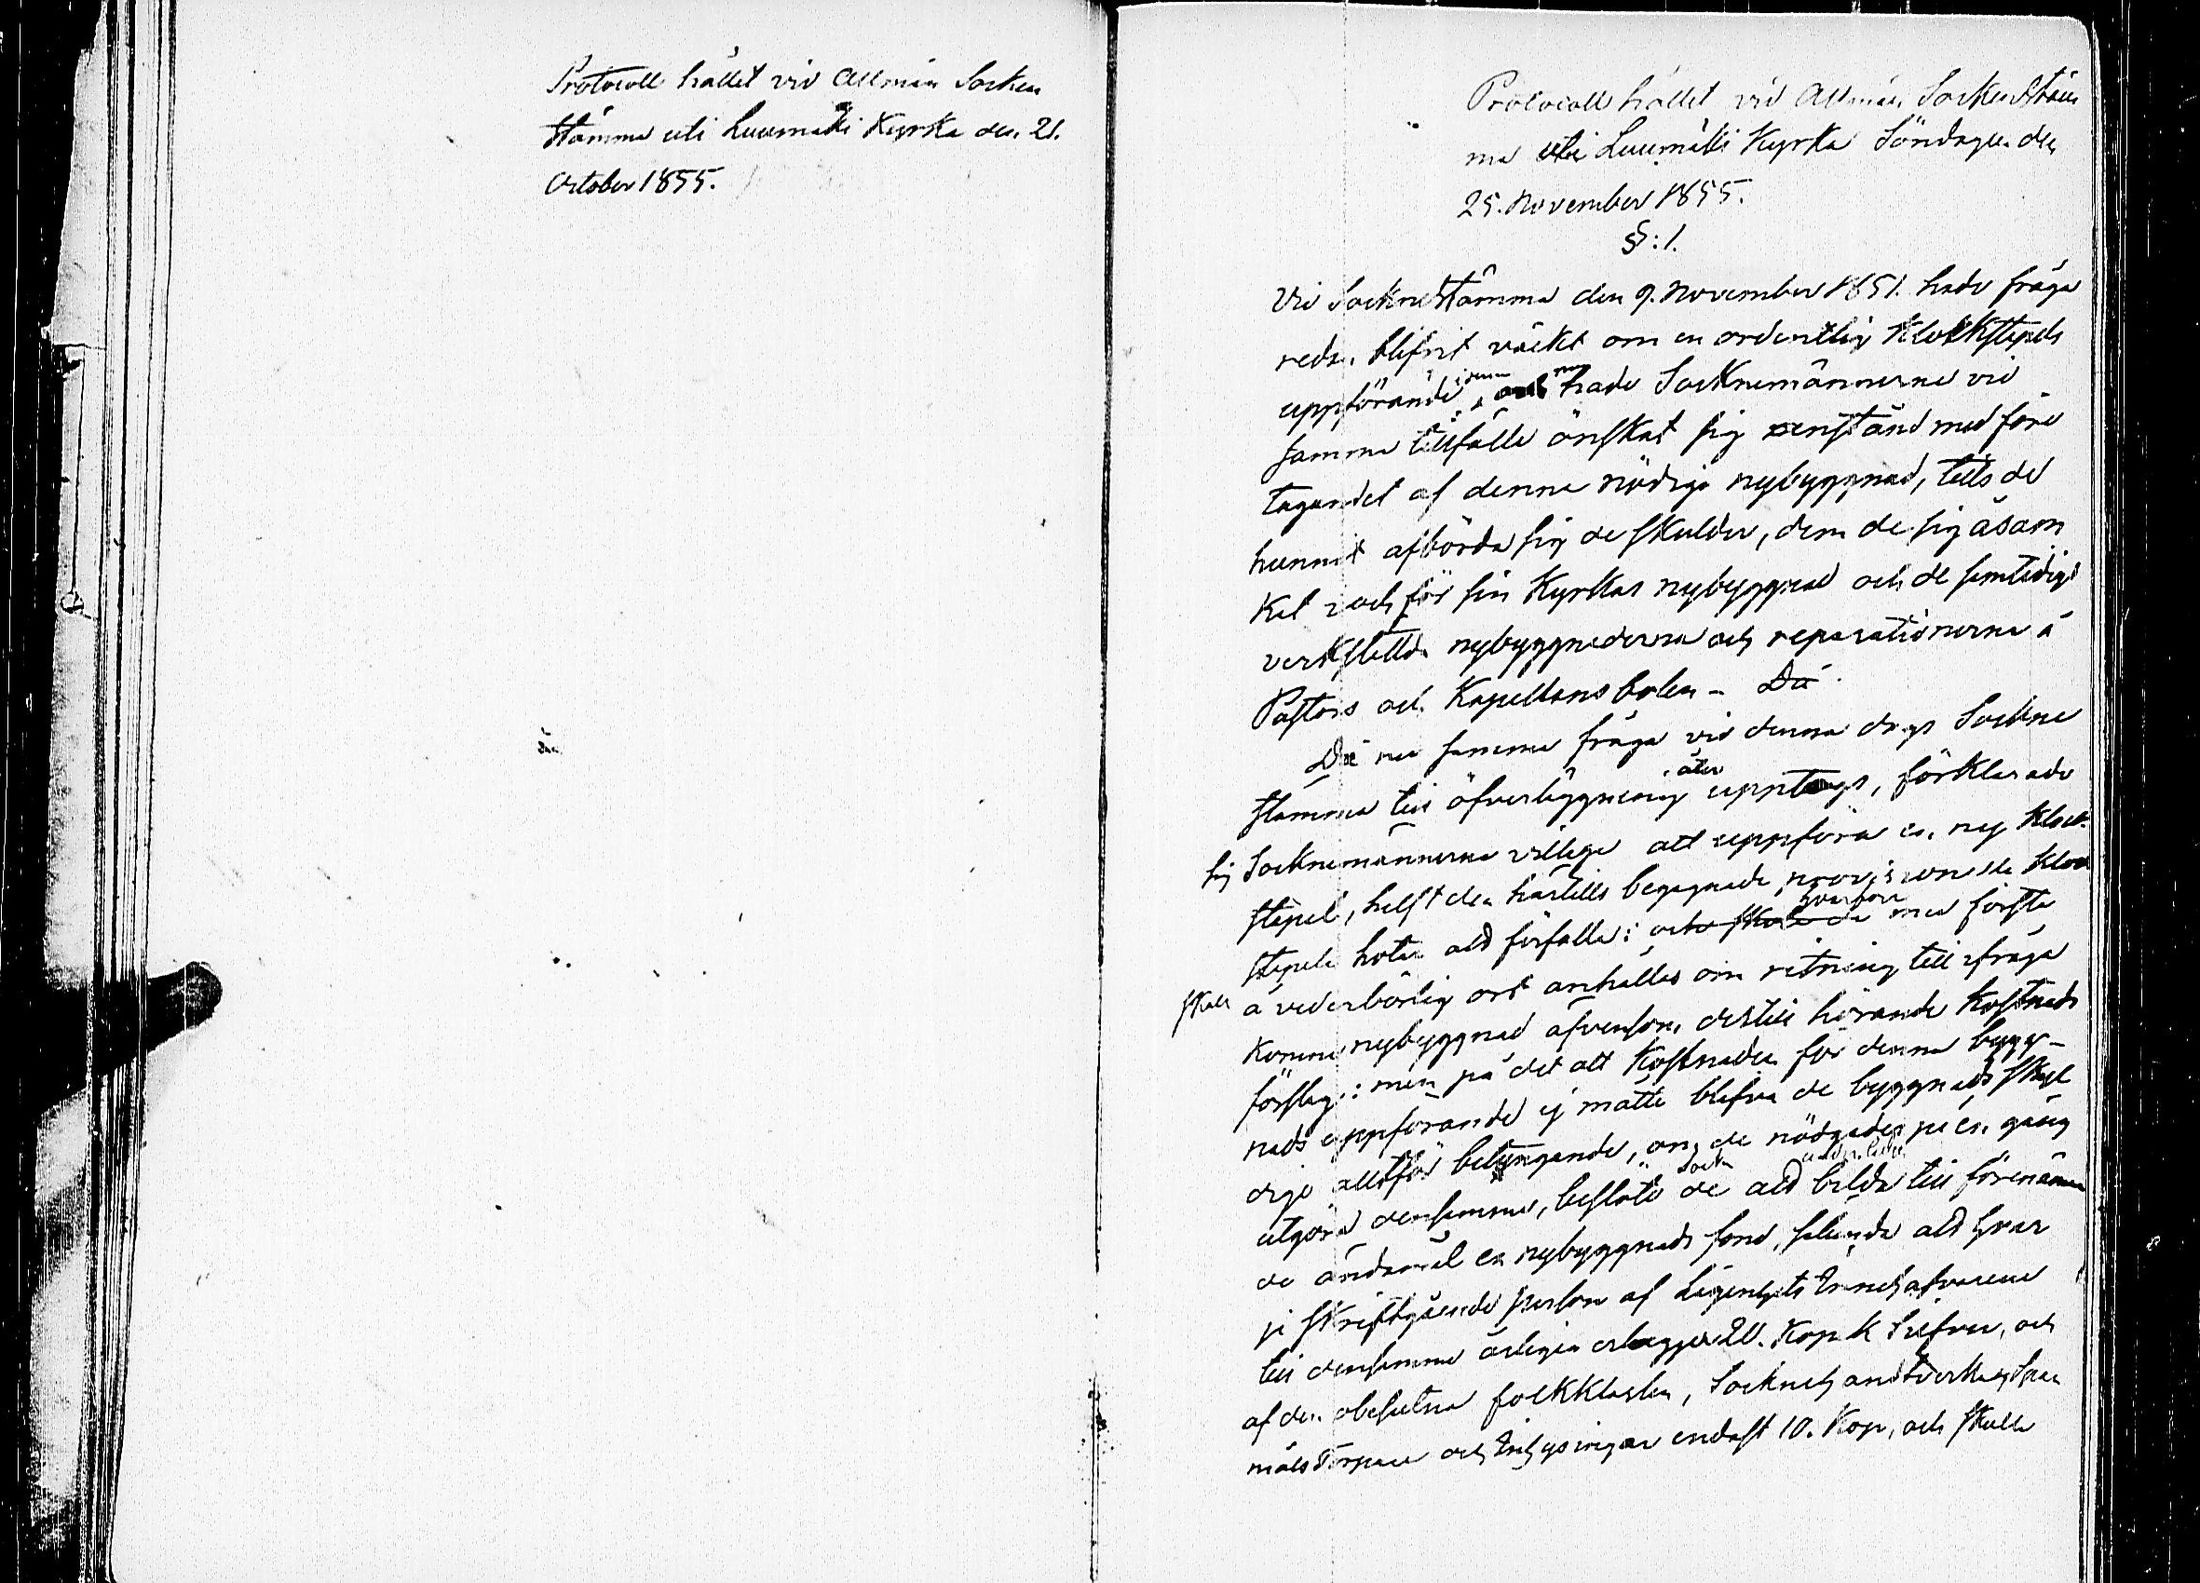 Protocoll hållet vid Allmän Socken
stämma uti Luumäki Kyrka den 21.
October 1855.
Protocoll hållet vid Allmän Sockenstäm
ma uti Luumäki Kyrka Söndagen den
25. November 1855.
§:1.
Vid Socknestämma den 9. November 1851. hade fråga
redan blifvit väckt om en ordentlig Klockstapels
uppförande, hade Socknemännerne vid
samma tillfälle önskat sig anstånd med före
tagandet af denna nödiga nybyggnad, tills de
hunnit afbörda sig de skulder, dem de sig åsam
kat för sin Kyrkas nybyggnad och de samtidigt
verkstellda nybyggnaderna och reparationerna å
Pastors och Kapellansbolen - Då
Då nu samma fråga vid denna dags Sockne
stämma till öfverläggning åter upptogs, förklarade
sig Socknemännerna villige att uppföra en ny Klock
stapel, helst den härtills begagnade provisionella Klock
stapeln hotar att förfalla: och skola de hvarföre med första
skall å vederbörlig ort anhållas om ritning till ifråga
komne nybyggnad äfvensom dertill hörande Kostnads
förslag: men på det att Kostnaden för denna bygg-
nads uppförande ej måtte blifva de byggnads skyl
dige alltför betungande, om de nödgades på en gång
utgöra densamma, beslöto de att bilda till förenämn
de ändamål en nybyggnads fond, sålunda att hvar
je skriftgående person af Lägenhets Innehafvarene
till densamma årligen erlägger 20. Kop. Silfver, och
af den obesuttna folkklassen, Socknehandtverkare, Spann
måls Torpare och Inhysingar endast 10. Kop, och skulle